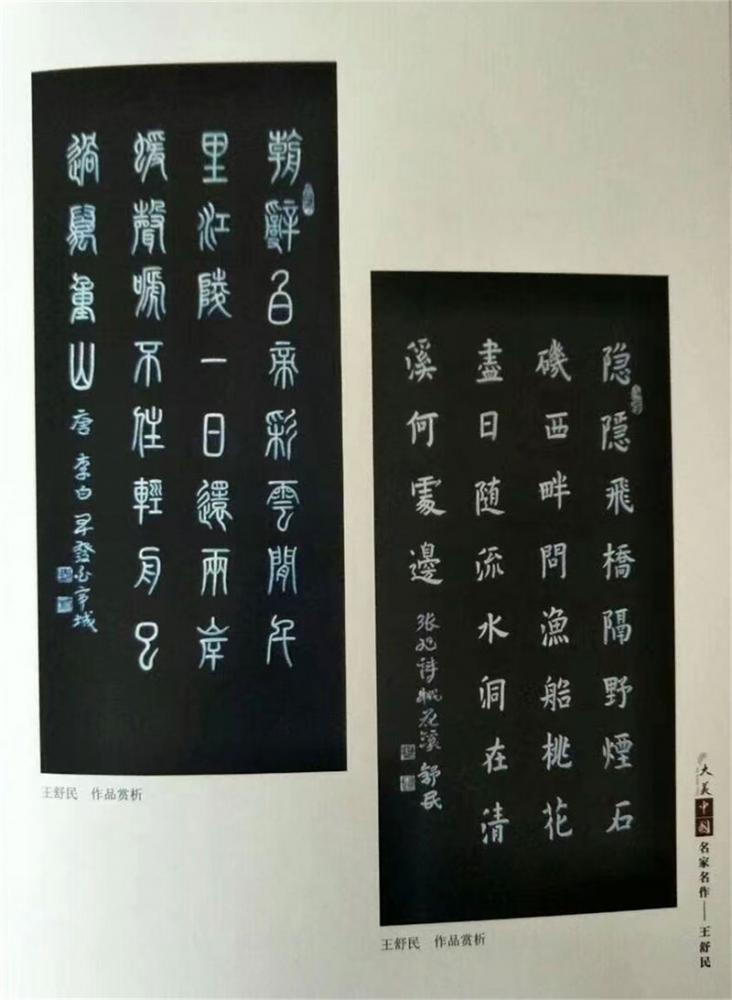 朝辭白帝彩雲間千
里江陵一日還兩岸
蝯聲嗁不住輕舟已
過萬重山 唐 李白 早發白帝城
王舒民 作品赏析
隐隱飛橋隔野煙石
磯西畔問漁船桃花
盡日随流水洞在清
溪何處邊 张旭诗桃花溪 舒民
王舒民 作品赏析
大美中国 名家名作——王舒民